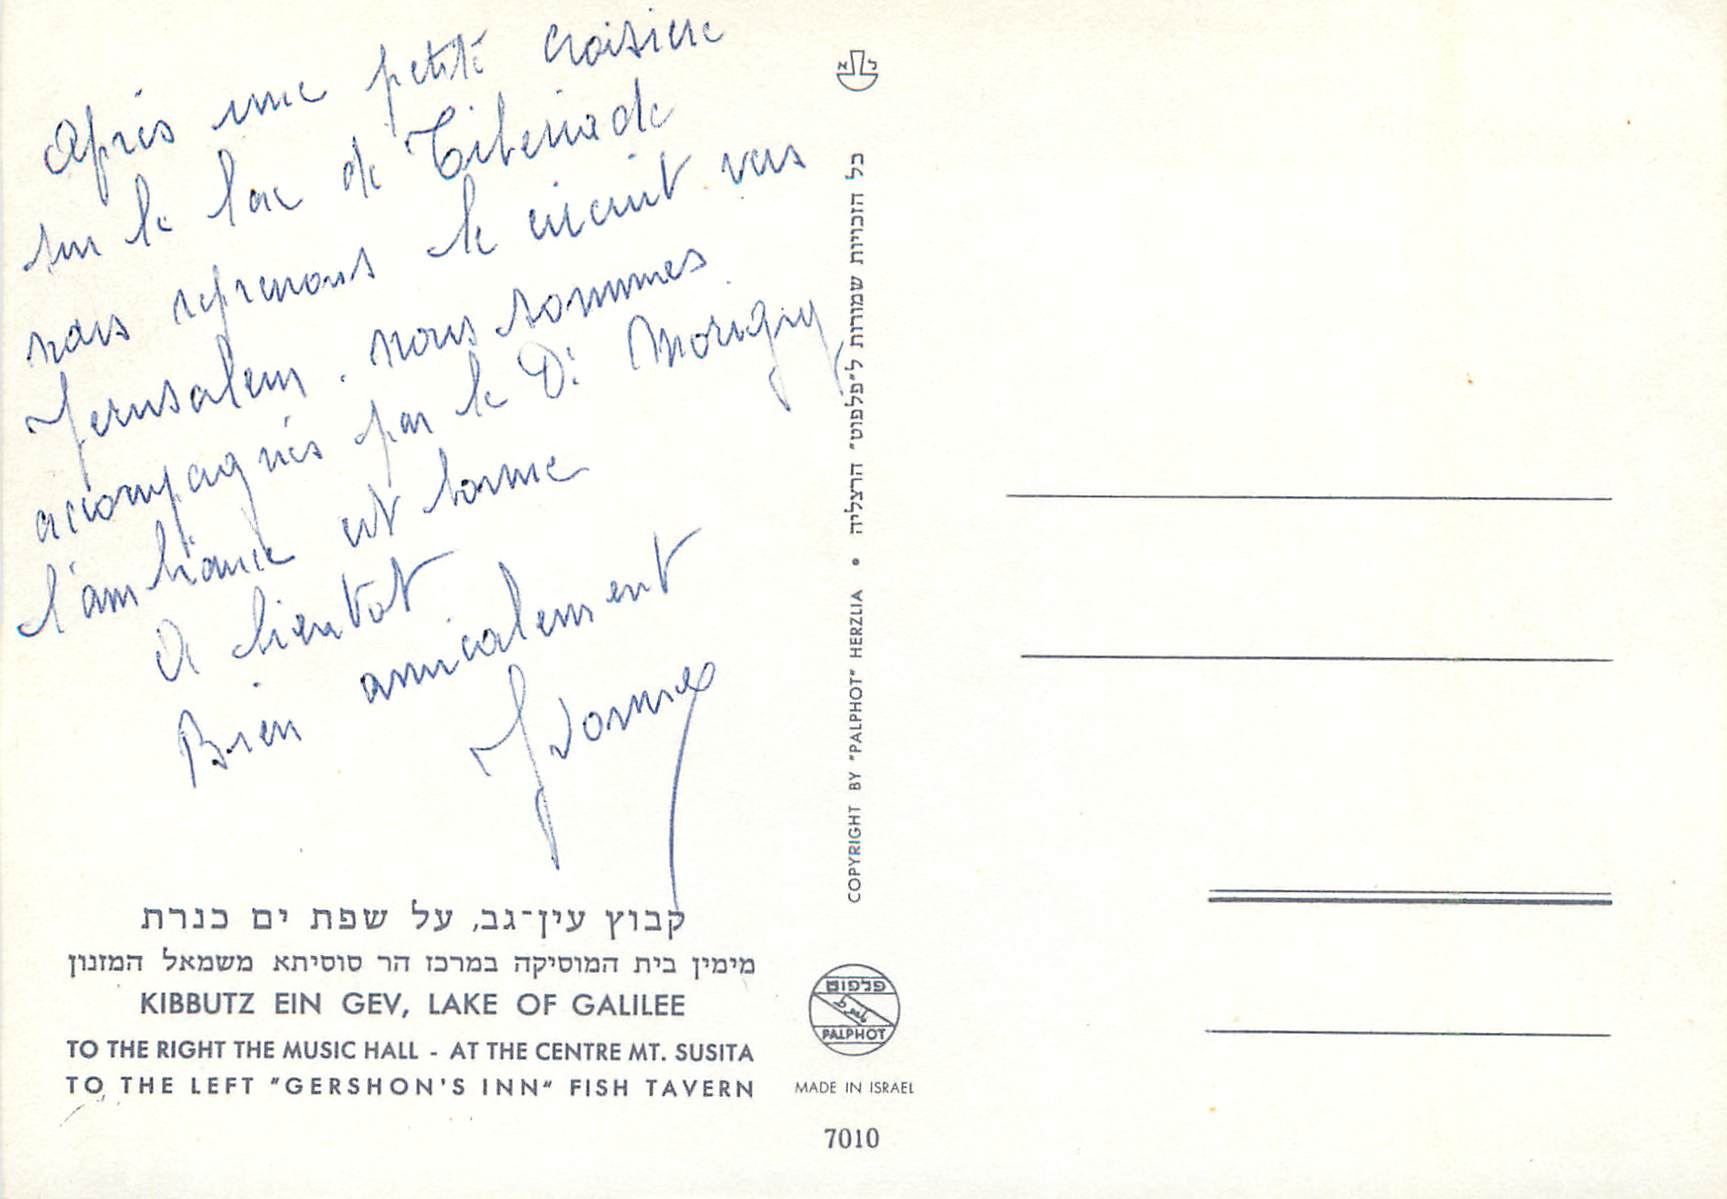 Après une petite croisière
sur le lac de Tibériade
nous reprenons le circuit vers
Jerusalem. nous sommes
accompagnés par le Dr
l'ambiance est bonne
A bientôt
Bien amicalement
כל הזכויות שמורות ל״פלפוט״ הרצליה • COPYRIGHT BY "PALPHOT" HERZLIA
קבוץ עין־גב, על שפת ים כנרת
מימין בית המוסיקה במרכז הר סוסיתא משמאל המזנון
KIBBUTZ EIN GEV, LAKE OF GALILEE
TO THE RIGHT THE MUSIC HALL - AT THE CENTRE MT. SUSITA
TO THE LEFT "GERSHON'S INN" FISH TAVERN
פלפוט
PALPHOT
MADE IN ISRAEL
7010